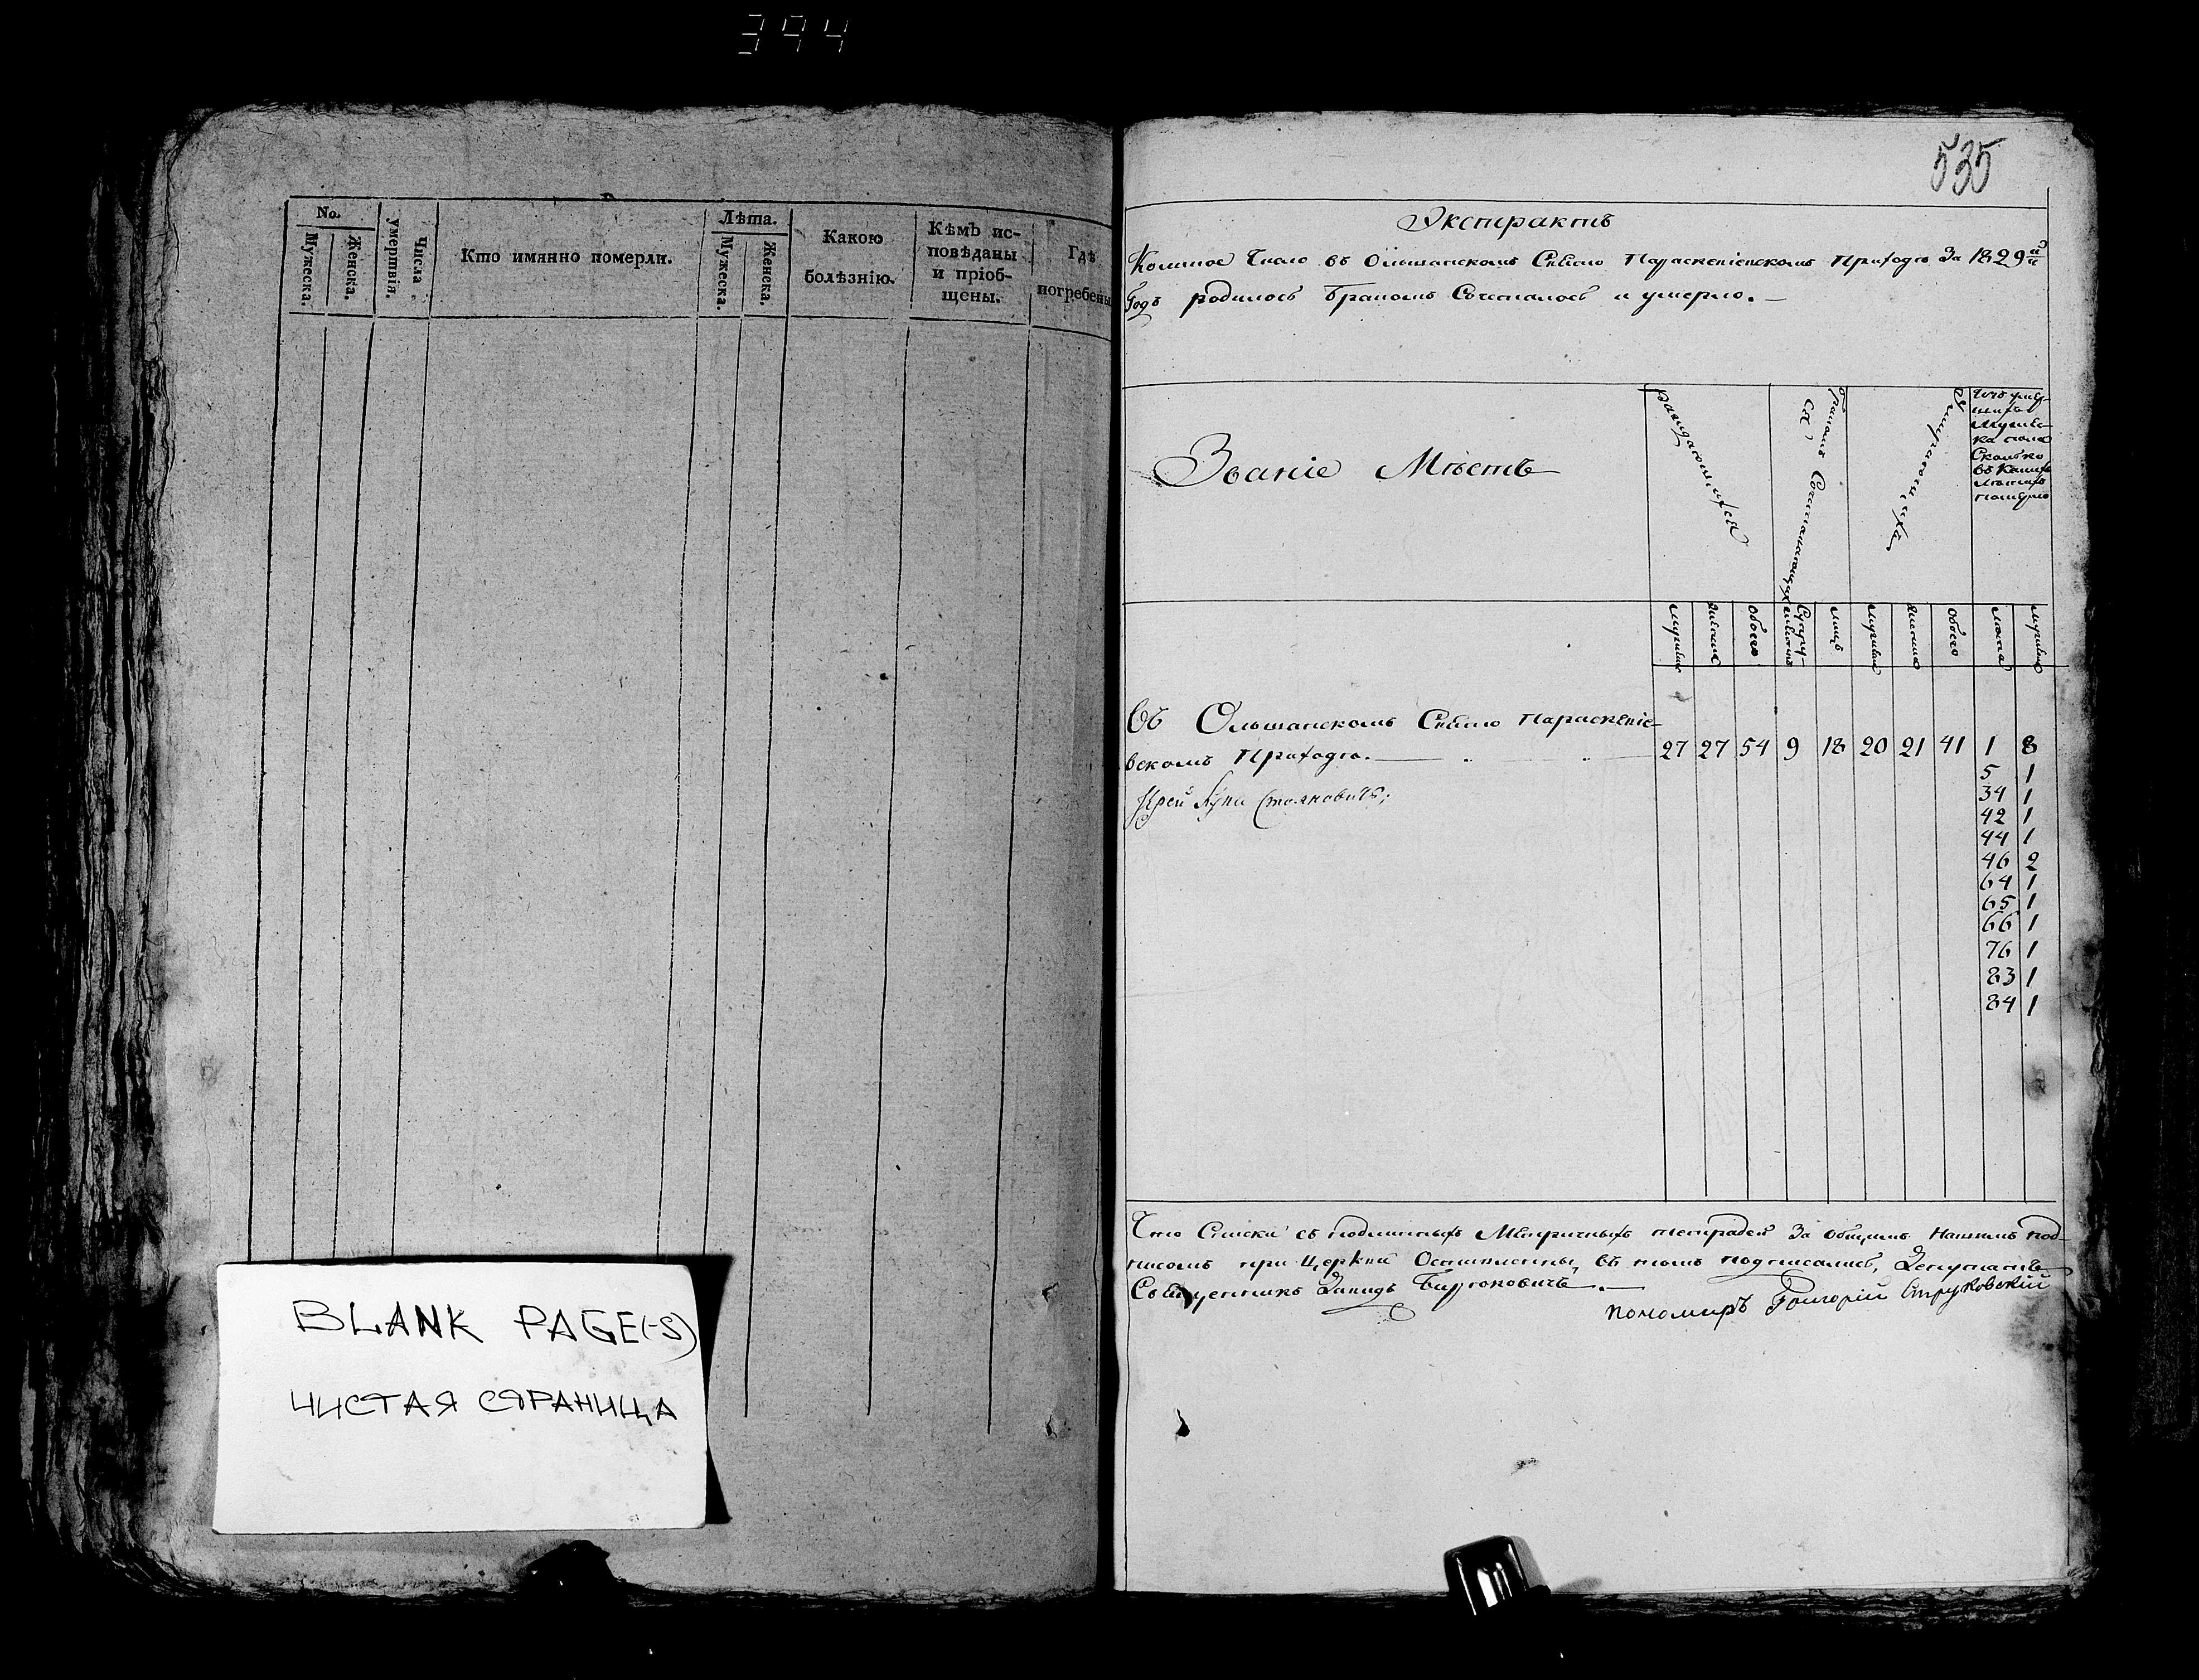 394
No.
Мужеска.
Женска.
Числа умертвія.
Кто имянно померли.
Лѣта.
Мужеска.
Женска.
Какою
болѣзнію.
Кѣмъ ис-
повѣданы
и пріоб-
щены.
Гдѣ
погребены
BLANK PAGE(-S)
ЧИСТАЯ СТРАНИЦА
535
Экстрактъ
Коликое Число въ Ольшанскомъ Свято Параскевіевскомъ Приходѣ За 1829й
Годъ родилось бракомъ Сочеталось и умерло.
Званіе Мѣстъ
раждающихся
бракомъ Сочетавающихся
умирающихъ
Сколько
въ какихъ
лѣтахъ
померло
мужеска
женска
обоего
Супру-
лицъ
мужеска
женска
обоего
лѣта
мужеска
Въ Ольшанскомъ Свято Параскевіе-
вскомъ Приходѣ. 27 27 54 9 18 20 21 41 1 8
5 1
Іерей Стояновичъ;
34 1
42 1
44 1
46 2
64 1
65 1
66 1
76 1
83 1
84 1
Что Списки съ подлинныхъ Метричныхъ тетрадей За общимъ Нашимъ под-
писомъ при Церкви Оставлены, въ томъ подписались, Депутатъ
Священникъ Давидъ
пономаръ Григорій Струковскій